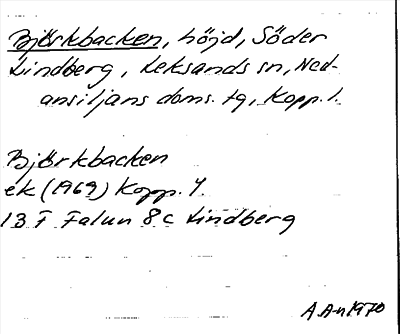 Björkbacken, höjd, Söder
Lindberg, Leksands sn, Ned-
ansiljans doms. tg, Kopp. l.
Björkbacken
ek (1969) Kopp. Y.
13 F Falun 8c Lindberg
A.An 1970